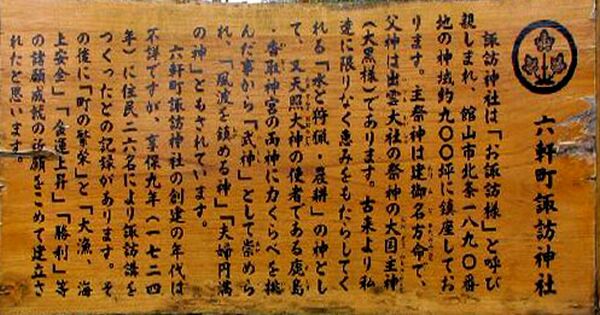 六軒町諏訪神社
諏訪神社は「お諏訪様」と呼び
親しまれ、館山市北条一八九〇番
地の神域約九〇〇坪に鎮座してお
ります。主祭神は建御名方命で、
父神は出雲大社の祭神の大国主神
(大黒様)であります。古来より私
達に限りなく恵みをもたらしてく
れる「水と狩猟・農耕」の神とし
て、又天照大神の使者である鹿島
・香取神宮の両神に力くらべを挑
んだ事から「武神」として崇めら
れ、「風波を鎮める神」「夫婦円満
の神」ともされています。
六軒町諏訪神社の創建の年代は
不詳ですが、享保九年(一七二四
年)に住民二六名により諏訪講を
つくったとの記録があります。そ
の後に「町の繁栄」と「大漁、海
上安全」「金運上昇」「勝利」等
の諸願成就の祈願をこめて建立さ
れたと思います。